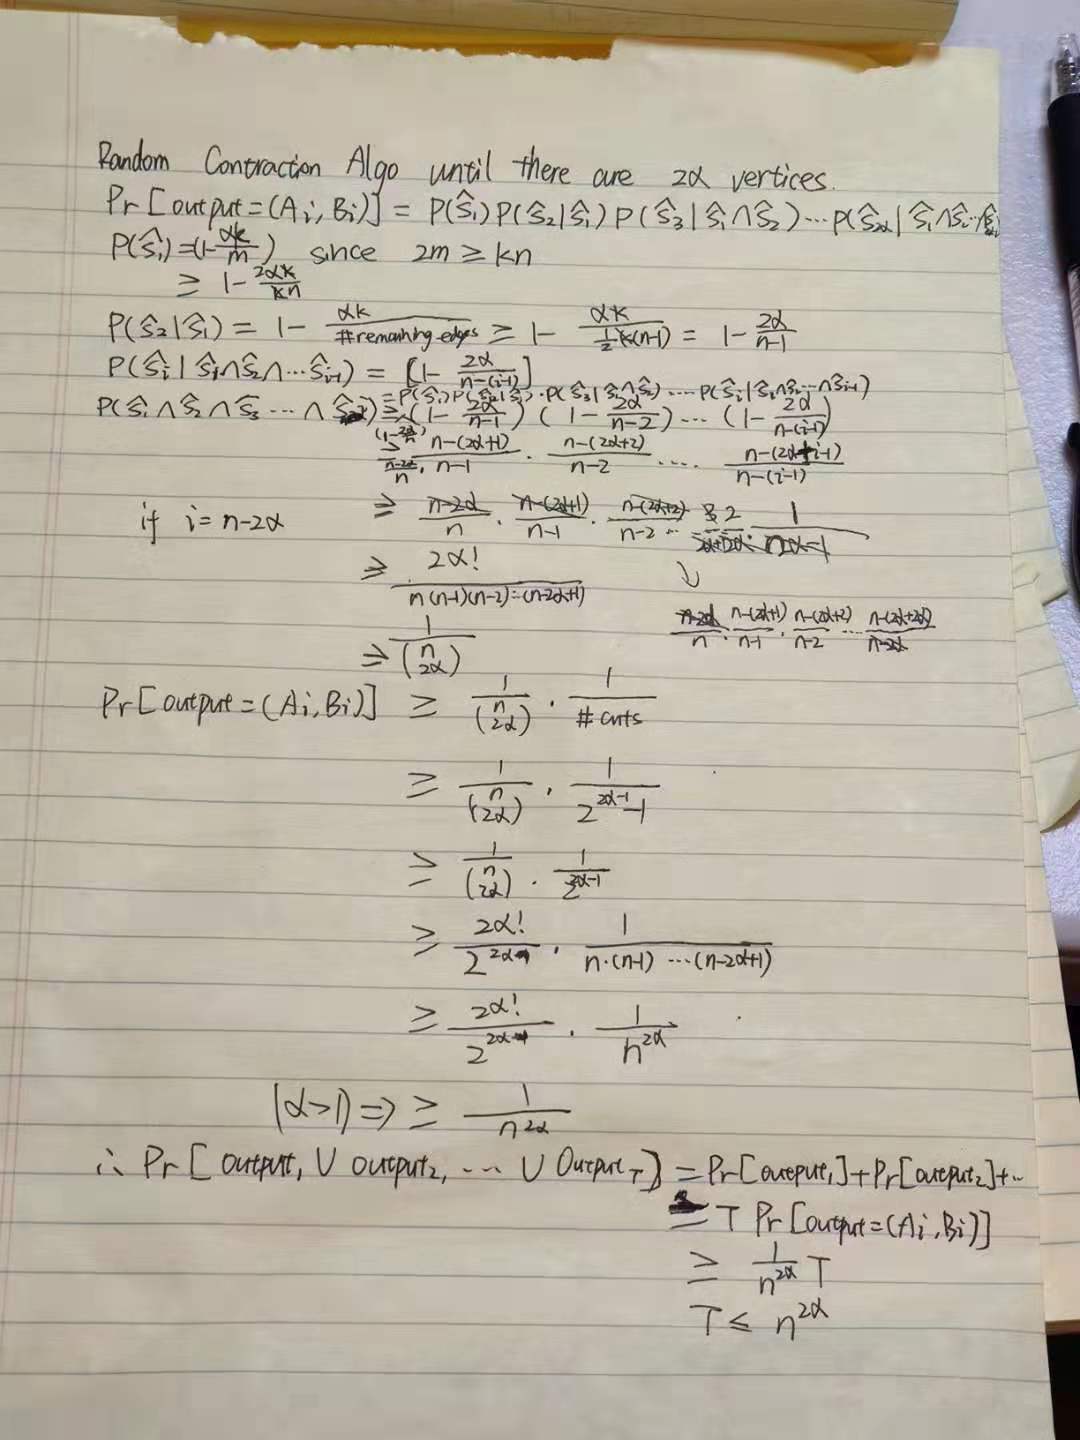 Random Contraction Algo until there are 2α vertices.
Pr[output=(Ai,Bi)] = P(Ŝ1)P(Ŝ2|Ŝ1)P(Ŝ3|Ŝ1∧Ŝ2)...P(Ŝ2α|Ŝ1∧Ŝ2...
P(Ŝ1)=(1-αk/m) since 2m ≥ kn
≥ 1-2αk/kn
P(Ŝ2|Ŝ1) = 1 - αk/#remaining edges ≥ 1 - αk/(1/2 k(n-1)) = 1 - 2α/(n-1)
P(Ŝi|Ŝ1∧Ŝ2∧...Ŝi-1) = [1 - 2α/(n-(i-1))]
= P(Ŝ1)P(Ŝ2|Ŝ1)·P(Ŝ3|Ŝ1∧Ŝ2)....P(Ŝi|Ŝ1∧Ŝ2...∧Ŝi-1)
P(Ŝ1∧Ŝ2∧Ŝ3...∧ ≥ (1-2α/n) (1-2α/(n-1)) (1-2α/(n-2)) ... (1-2α/(n-(i-1)))
≥ (n-2α)/n · (n-(2α+1))/(n-1) · (n-(2α+2))/(n-2) .... (n-(2α+i-1))/(n-(i-1))
if i=n-2α ≥ (n-2α)/n · (n-(2α+1))/(n-1) · (n-(2α+2))/(n-2) ...
≥ 2α!/(n(n-1)(n-2)...(n-2α+1))
(n-2α)/n · (n-(2α+1))/(n-1) · (n-(2α+2))/(n-2) ... (n-(2α+2α))/(n-2α)
≥ 1/(n 2α)
Pr[output=(Ai,Bi)] ≥ 1/(n 2α) · 1/#cuts
≥ 1/(n 2α) · 1/(2^(2α-1)-1)
≥ 1/(n 2α) · 1/2^(2α-1)
≥ 2α!/2^(2α-1) · 1/(n·(n-1)...(n-2α+1))
≥ 2α!/2^(2α-1) · 1/n^(2α)
(α>1) ⇒ ≥ 1/n^(2α)
∴ Pr[output1 ∪ output2, ... ∪ OutputT] = Pr[output1]+Pr[output2]+..
= T Pr[output=(Ai,Bi)]
≥ 1/n^(2α) T
T ≤ n^(2α)